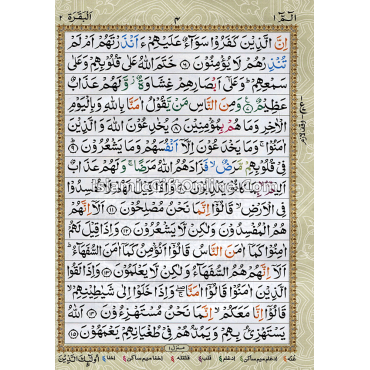 الٓمّٓ ١ ٣ اَلْبَقَرَة ٢
اِنَّ الَّذِیْنَ كَفَرُوْا سَوَآءٌ عَلَیْهِمْ ءَاَنْذَرْتَهُمْ اَمْ لَمْ
تُنْذِرْهُمْ لَا یُؤْمِنُوْنَ ﴿۶﴾ خَتَمَ اللّٰهُ عَلٰی قُلُوْبِهِمْ وَعَلٰی
سَمْعِهِمْ ؕ وَعَلٰۤی اَبْصَارِهِمْ غِشَاوَةٌ ؗ وَّلَهُمْ عَذَابٌ
عَظِیْمٌ ﴿۷﴾ وَمِنَ النَّاسِ مَنْ یَّقُوْلُ اٰمَنَّا بِاللّٰهِ وَبِالْیَوْمِ
الْاٰخِرِ وَمَا هُمْ بِمُؤْمِنِیْنَ ﴿۸﴾ یُخٰدِعُوْنَ اللّٰهَ وَالَّذِیْنَ
اٰمَنُوْا ۚ وَمَا یَخْدَعُوْنَ اِلَّاۤ اَنْفُسَهُمْ وَمَا یَشْعُرُوْنَ ﴿۹﴾
فِیْ قُلُوْبِهِمْ مَّرَضٌ ۙ فَزَادَهُمُ اللّٰهُ مَرَضًا ۚ وَلَهُمْ عَذَابٌ
اَلِیْمٌۢ ۙ بِمَا كَانُوْا یَكْذِبُوْنَ ﴿۱۰﴾ وَاِذَا قِیْلَ لَهُمْ لَا تُفْسِدُوْا
فِی الْاَرْضِ ۙ قَالُوْۤا اِنَّمَا نَحْنُ مُصْلِحُوْنَ ﴿۱۱﴾ اَلَاۤ اِنَّهُمْ
هُمُ الْمُفْسِدُوْنَ وَلٰكِنْ لَّا یَشْعُرُوْنَ ﴿۱۲﴾ وَاِذَا قِیْلَ لَهُمْ
اٰمِنُوْا كَمَاۤ اٰمَنَ النَّاسُ قَالُوْۤا اَنُؤْمِنُ كَمَاۤ اٰمَنَ السُّفَهَآءُ ؕ
اَلَاۤ اِنَّهُمْ هُمُ السُّفَهَآءُ وَلٰكِنْ لَّا یَعْلَمُوْنَ ﴿۱۳﴾ وَاِذَا لَقُوا
الَّذِیْنَ اٰمَنُوْا قَالُوْۤا اٰمَنَّا ۖۚ وَاِذَا خَلَوْا اِلٰی شَیٰطِیْنِهِمْ ۙ
قَالُوْۤا اِنَّا مَعَكُمْ ۙ اِنَّمَا نَحْنُ مُسْتَهْزِءُوْنَ ﴿۱۴﴾ اَللّٰهُ
یَسْتَهْزِئُ بِهِمْ وَیَمُدُّهُمْ فِیْ طُغْیَانِهِمْ یَعْمَهُوْنَ ﴿۱۵﴾